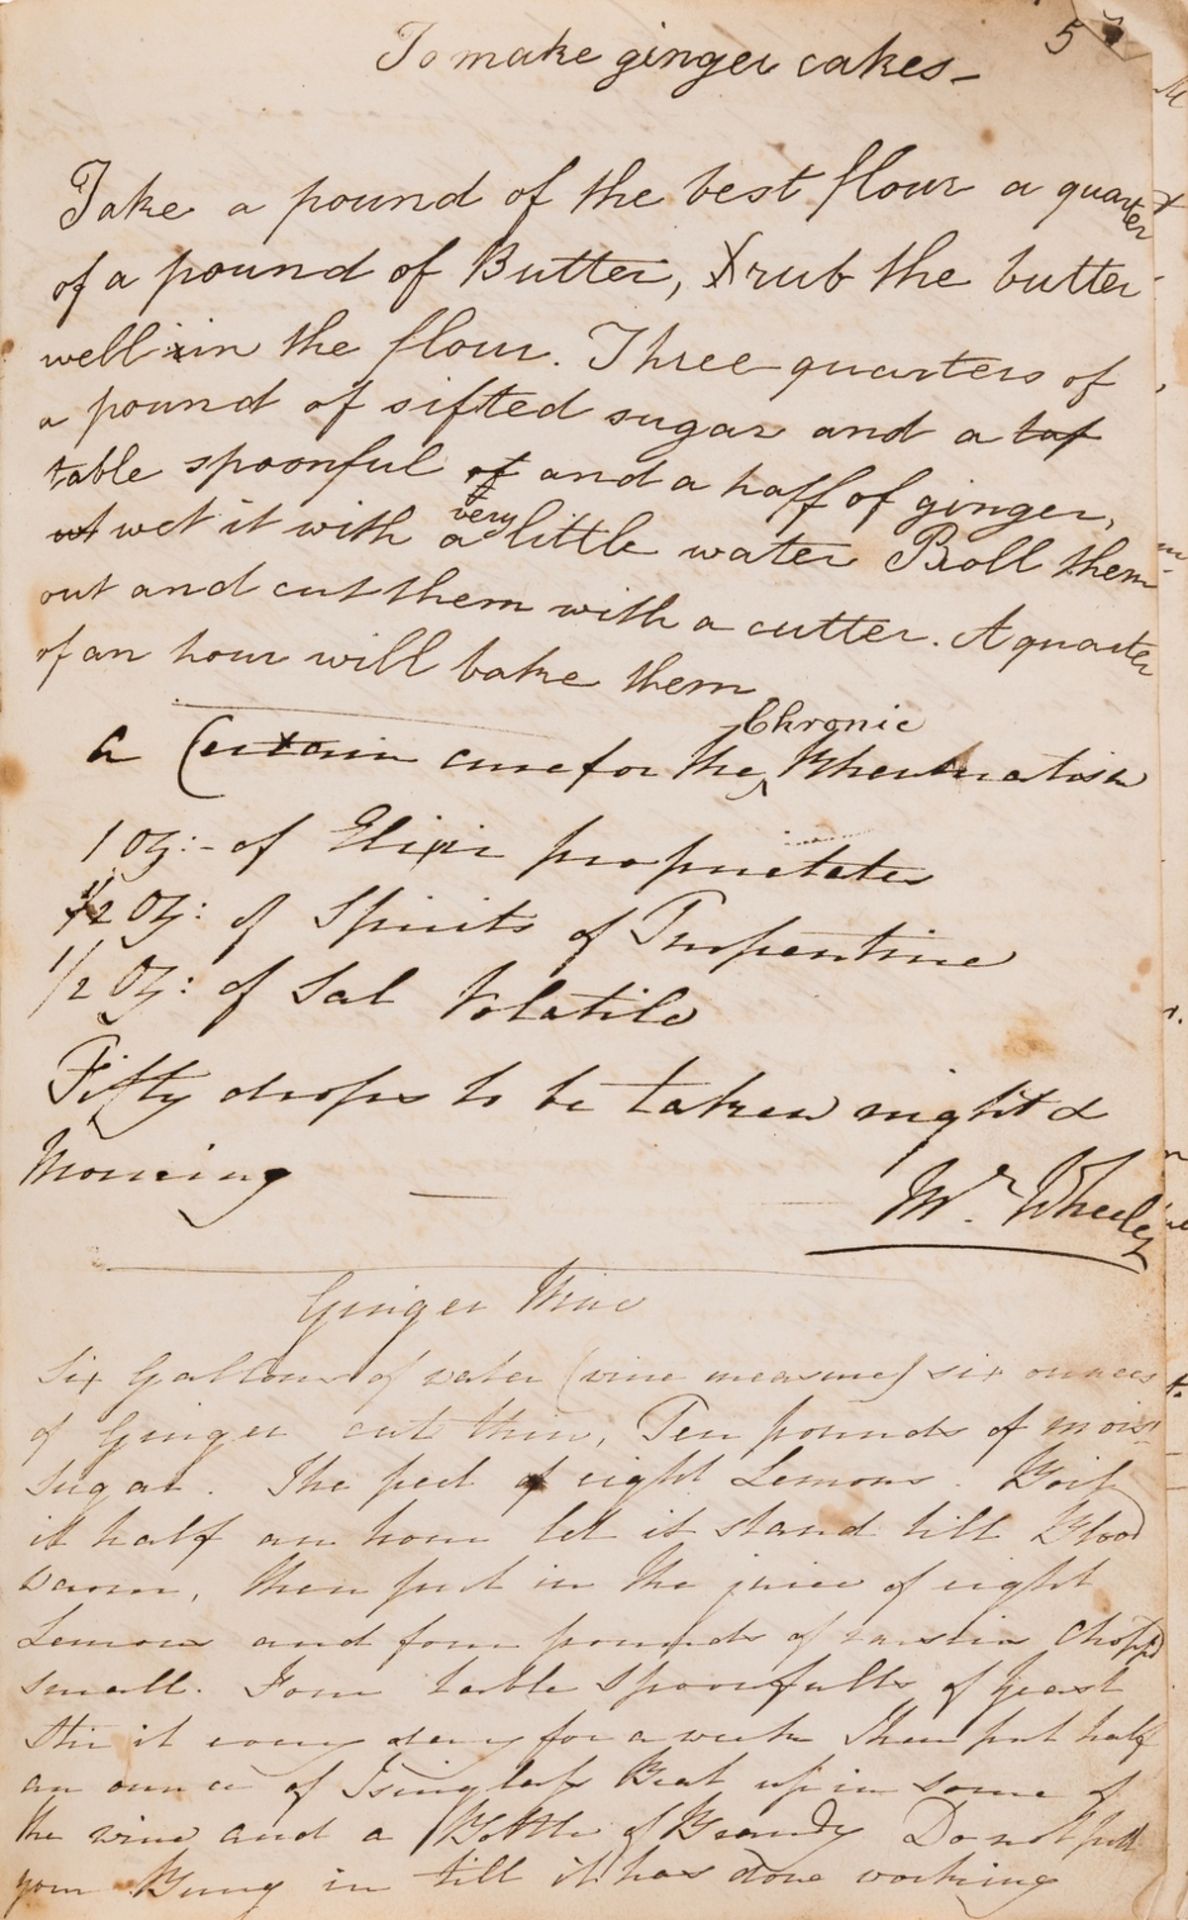 To make ginger cakes-
57
Take a pound of the best flour a quarter
of a pound of Butter, rub the butter
well in the flour. Three quarters of
a pound of sifted sugar and a taf
table spoonful of and a half of ginger,
wt wet it with a very little water Roll them
out and cut them with a cutter. A quarter
of an hour will bake them
a Certain cure for the Chronic Rheumatism
1 oz:- of Elixir proprietates
1/2 oz: of Spirits of Turpentine
1/2 oz: of Sal Volatile
Fifty drops to be taken night &
Morning
Mr. Wheeley
Ginger Wine
Six Gallons of water (wine measure) six ounces
of Ginger cut thin, Ten pounds of moist
sugar. The peel of eight Lemons. Boil
it half an hour let it stand till Blood
warm, then put in the juice of eight
Lemons and four pounds of raisins Chopp'd
small. Four table spoonfulls of yeast
Stir it every day for a week Then put half
an ounce of Isinglass Beat up in some of
the wine and a Bottle of Brandy Do not put
your Bung in till it has done working